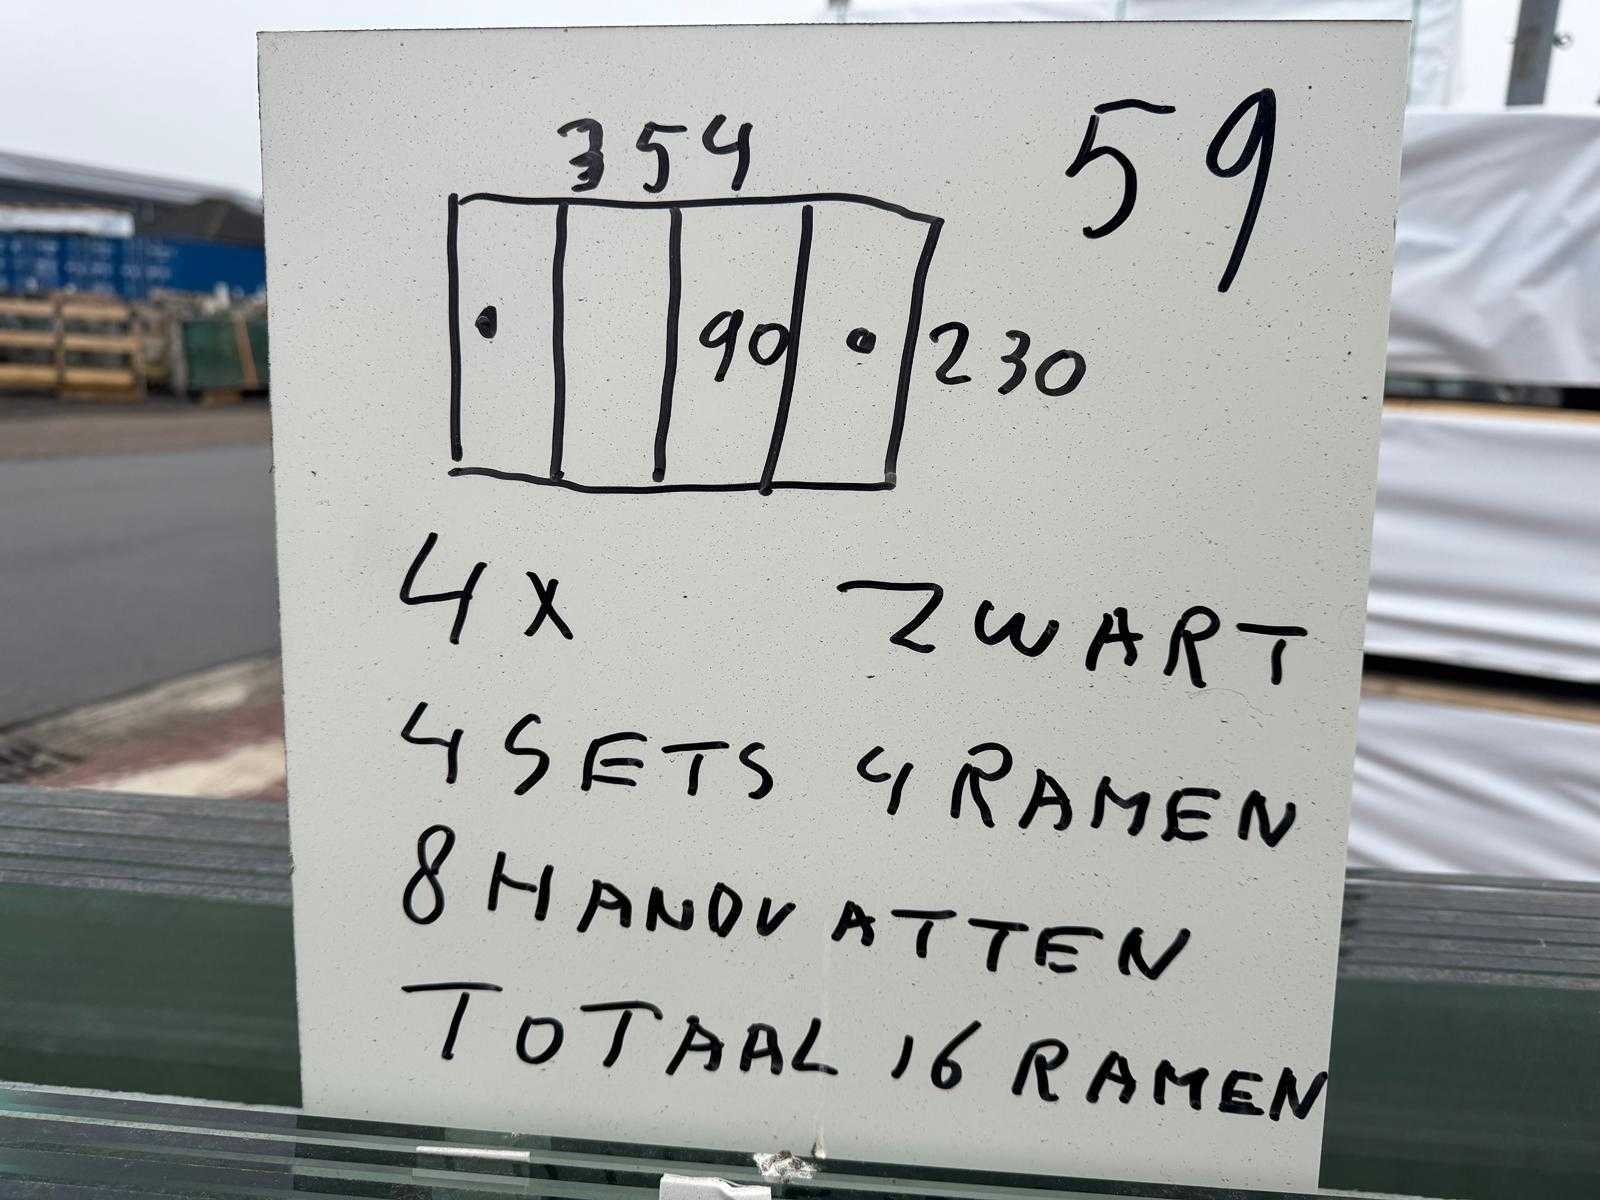 59
354
90
230
4 X ZWART
4 SETS 4 RAMEN
8 HANDVATTEN
TOTAAL 16 RAMEN